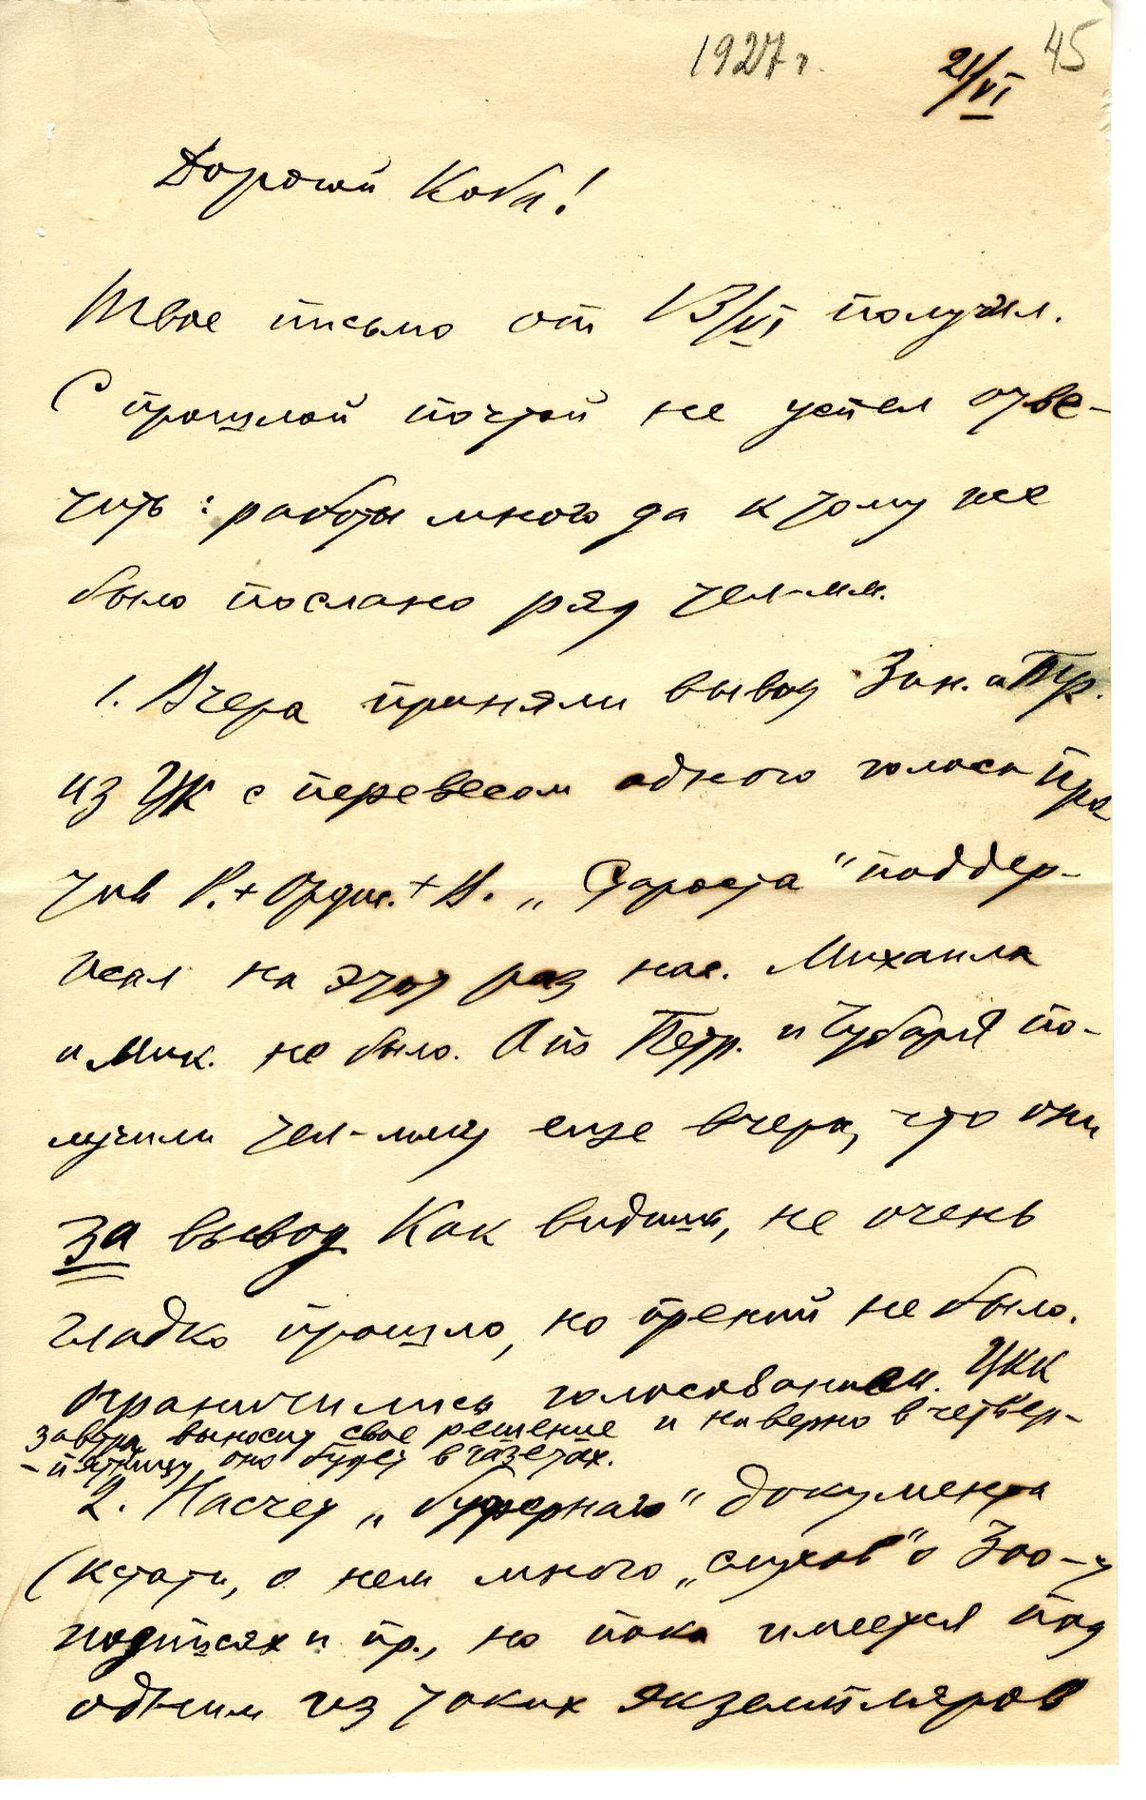 1927 г.
21/VI
45
Дорогой Коба!
Твое письмо от 13/VI получил.
С прошлой почтой не успел отве-
тить: работы много да к тому же
было послано ряд тел-мм.
1. Вчера приняли вывод Зин. и Тр.
из ЦК с перевесом одного голоса про
тив Р. + Орджо. + В. „Староста" поддер-
жал на этот раз нас. Михаила
и Мик. не было. От Петр. и Чубаря по-
лучили тел-мму еще вчера, что они
за вывод Как видишь, не очень
гладко прошло, но прений не было.
Ограничились голосованием. ЦКК
завтра выносит свое решение и наверно в четвер-
-пятницу оно будет в газетах.
2. Насчет „буферного" документа
(кстати, о нем много „слухов" о 300-т
подписях и пр., но пока имеется под
одним из таких экземпляров